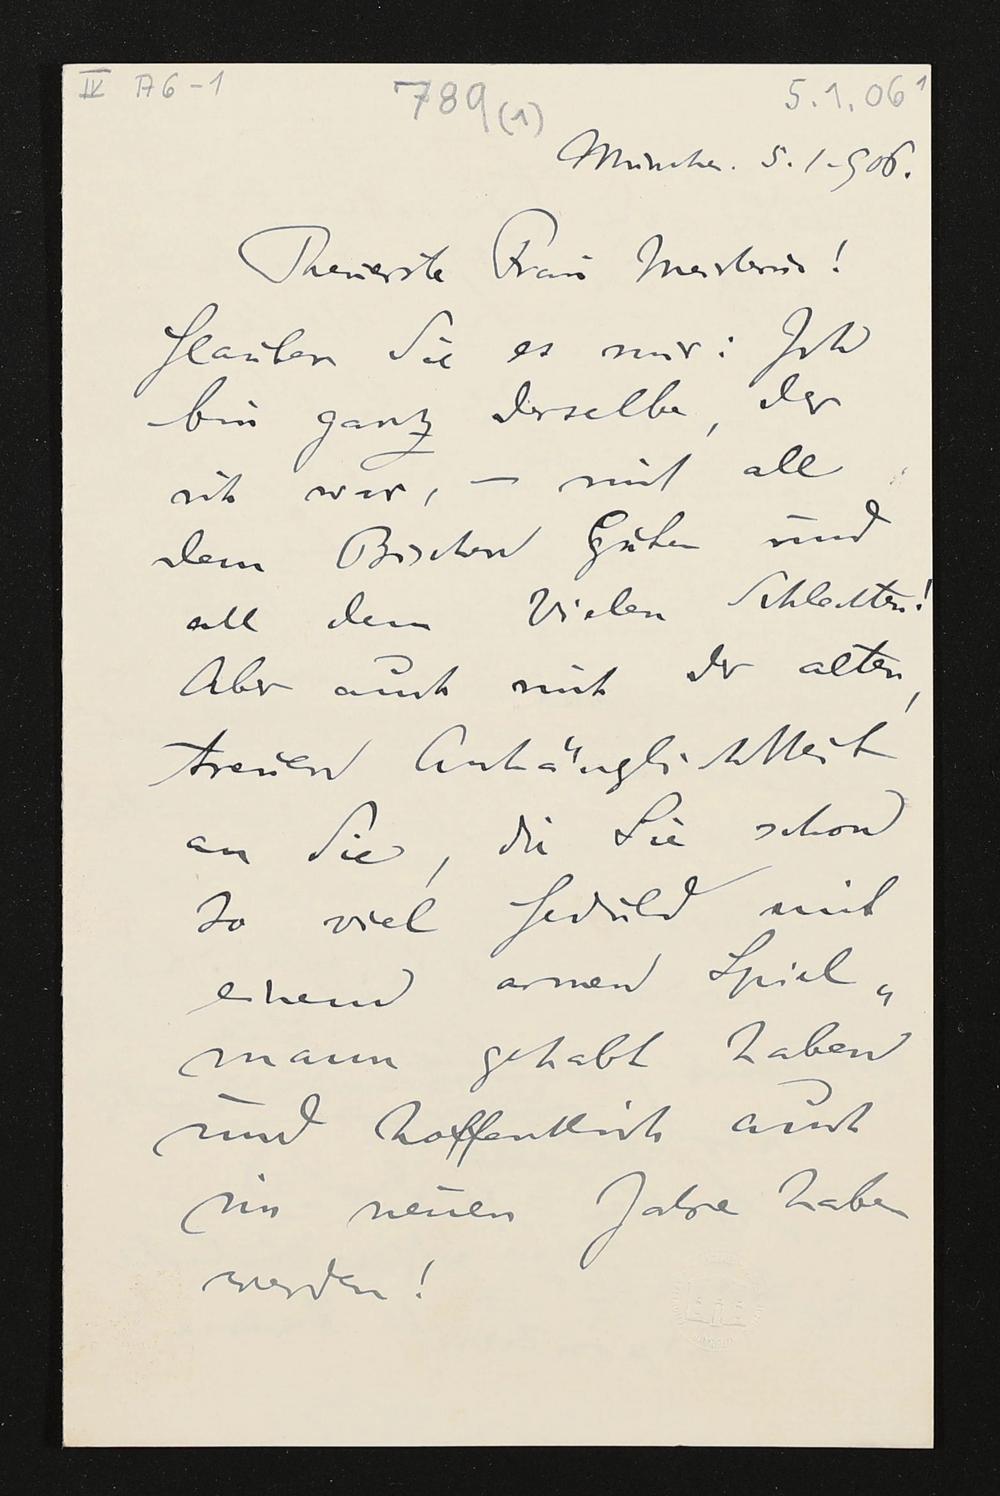 IV A6-1
789 (1)
5.1.06 1
München. 5.1.906.
Theuerste Frau Meisterin!
Glauben Sie es mir: Ich
bin ganz derselbe, der
ich war, — mit all
dem Bischen Guten und
all dem Vielen Schlechten!
Aber auch mit der alten,
treuen Anhänglichkeit
an Sie, die Sie schon
so viel Geduld mit
einem armen Spiel„
mann gehabt haben
und hoffentlich auch
im neuen Jahre haben
werden!